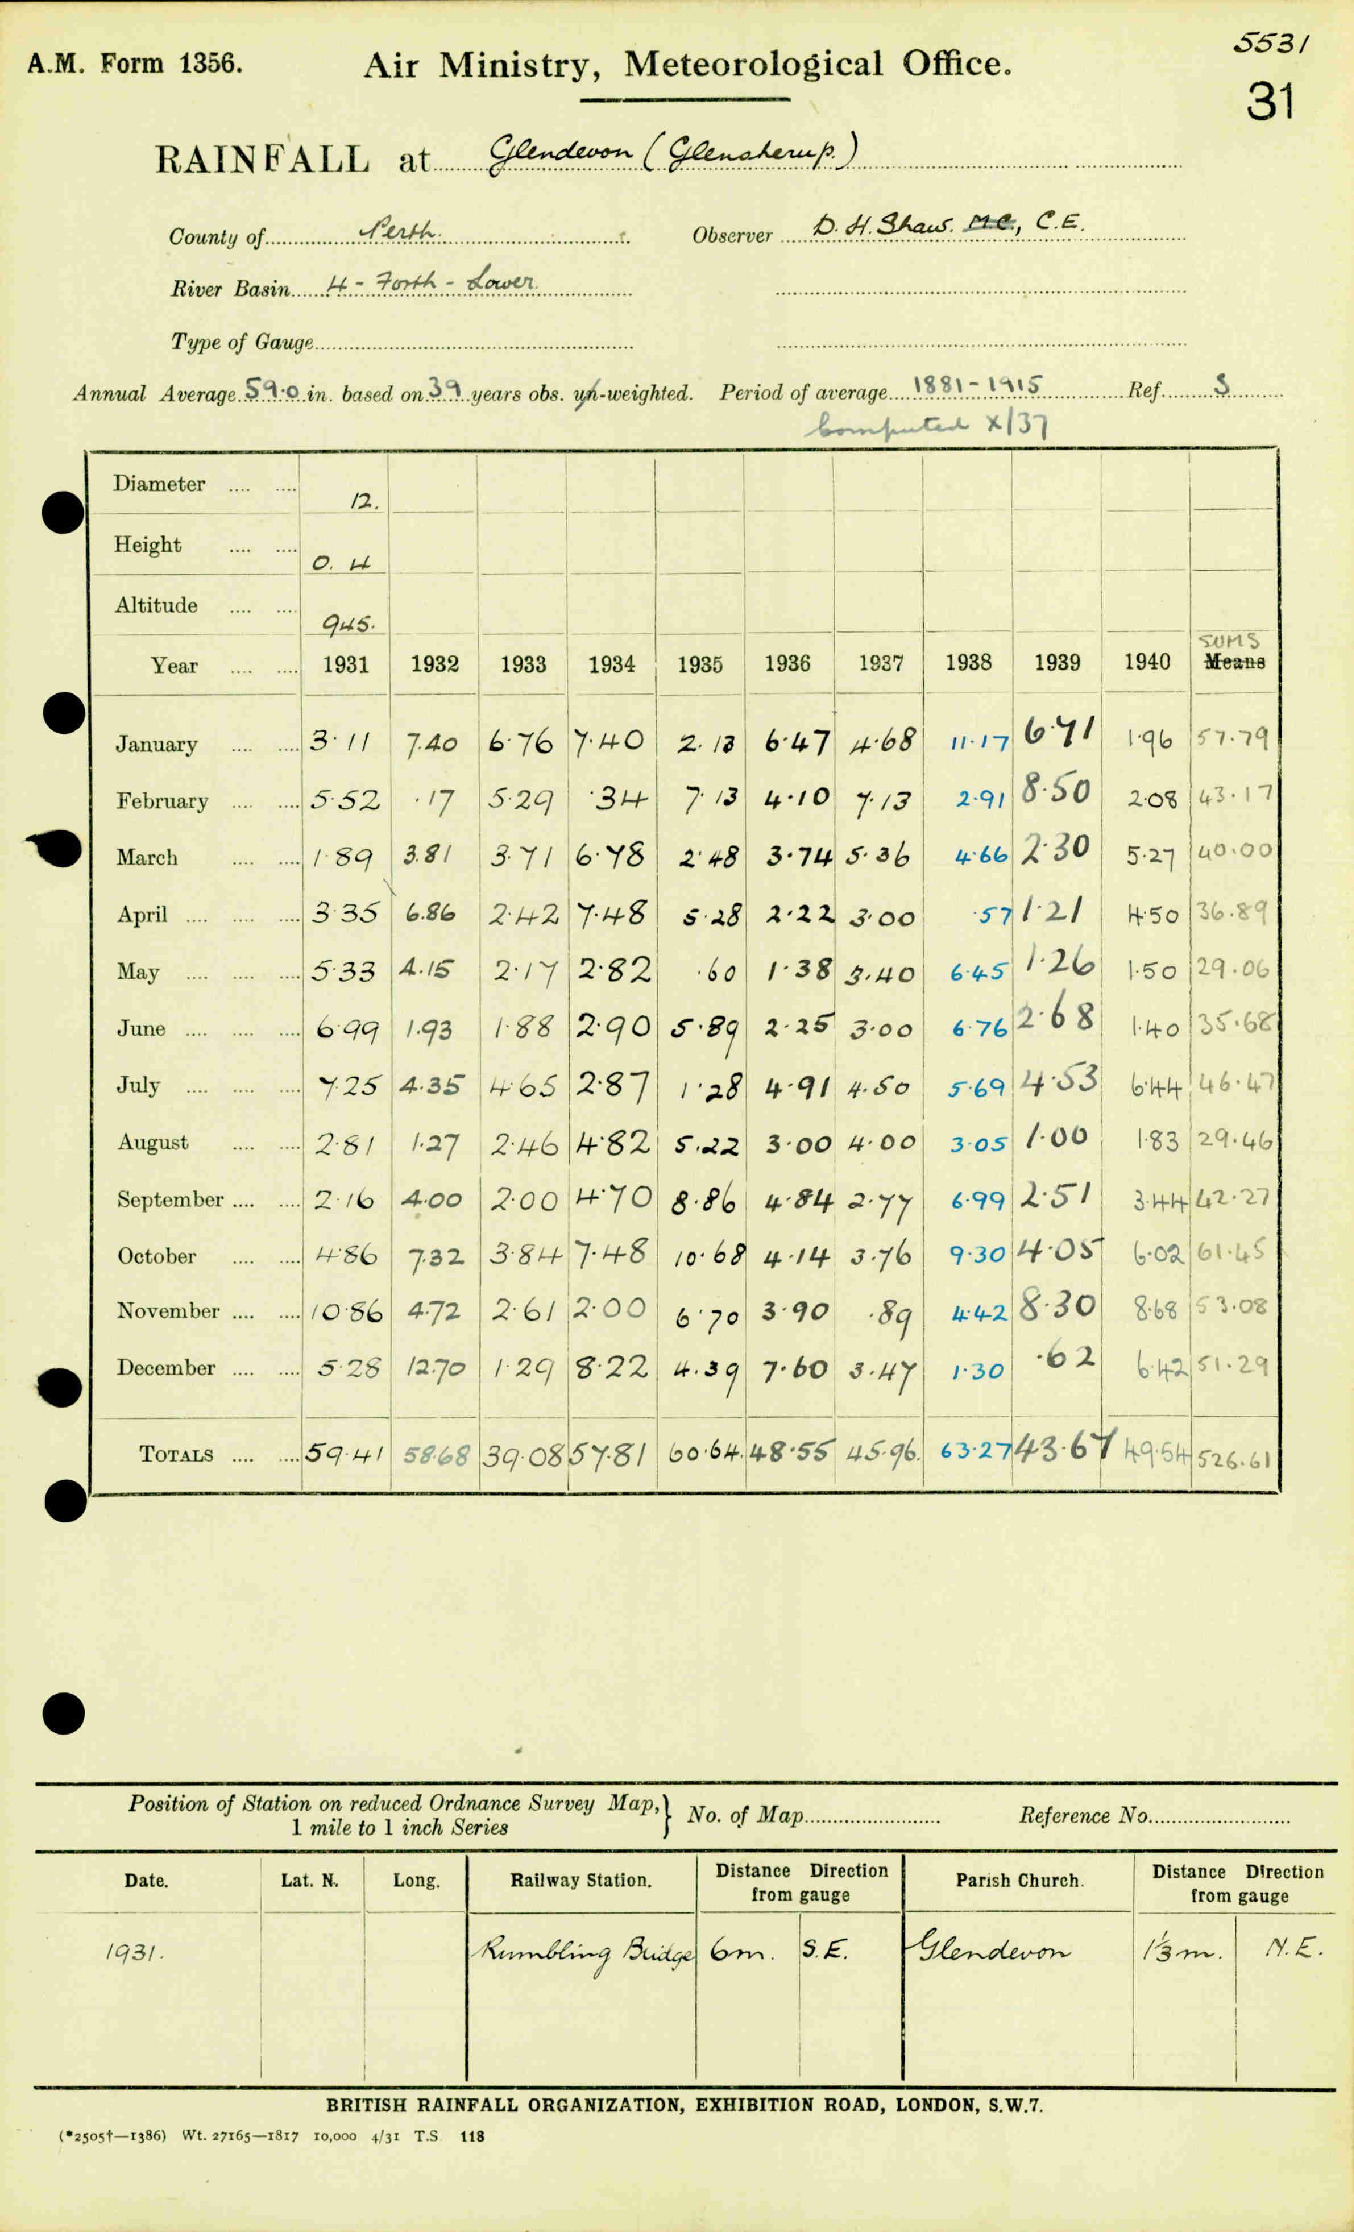 5531
A.M. Form 1356. Air Ministry, Meteorological Office.
31
RAINFALL at Glendevon (Glensherup.)
County of Perth. Observer D. H. Shaw. M.C., C.E.
River Basin 4 - Forth - Lower
Type of Gauge
Annual Average 59.0 in. based on 39 years obs. un-weighted. Period of average 1881-1915 Ref. S
Computed X/37
Diameter 12.
Height 0. 4
Altitude 945.
SUMS
Year 1931 1932 1933 1934 1935 1936 1937 1938 1939 1940 Means
January 3.11 7.40 6.76 7.40 2.13 6.47 4.68 11.17 6.71 1.96 57.79
February 5.52 .17 5.29 .34 7.13 4.10 7.13 2.91 8.50 2.08 43.17
March 1.89 3.81 3.71 6.78 2.48 3.74 5.36 4.66 2.30 5.27 40.00
April 3.35 6.86 2.42 7.48 5.28 2.22 3.00 .57 1.21 4.50 36.89
May 5.33 4.15 2.17 2.82 .60 1.38 3.40 6.45 1.26 1.50 29.06
June 6.99 1.93 1.88 2.90 5.89 2.25 3.00 6.76 2.68 1.40 35.68
July 7.25 4.35 4.65 2.87 1.28 4.91 4.50 5.69 4.53 6.44 46.47
August 2.81 1.27 2.46 4.82 5.22 3.00 4.00 3.05 1.00 1.83 29.46
September 2.16 4.00 2.00 4.70 8.86 4.84 2.77 6.99 2.51 3.44 42.27
October 4.86 7.32 3.84 7.48 10.68 4.14 3.76 9.30 4.05 6.02 61.45
November 10.86 4.72 2.61 2.00 6.70 3.90 .89 4.42 8.30 8.68 53.08
December 5.28 12.70 1.29 8.22 4.39 7.60 3.47 1.30 .62 6.42 51.29
TOTALS 59.41 58.68 39.08 57.81 60.64 48.55 45.96 63.27 43.67 49.54 526.61
Position of Station on reduced Ordnance Survey Map, 1 mile to 1 inch Series } No. of Map Reference No.
Date. Lat. N. Long. Railway Station. Distance Direction from gauge Parish Church. Distance Direction from gauge
1931. Rumbling Bridge 6m. S.E. Glendevon 1⅓m. N.E.
BRITISH RAINFALL ORGANIZATION, EXHIBITION ROAD, LONDON, S.W.7.
(*2505†—1386) Wt. 27165—1817 10,000 4/31 T.S. 118